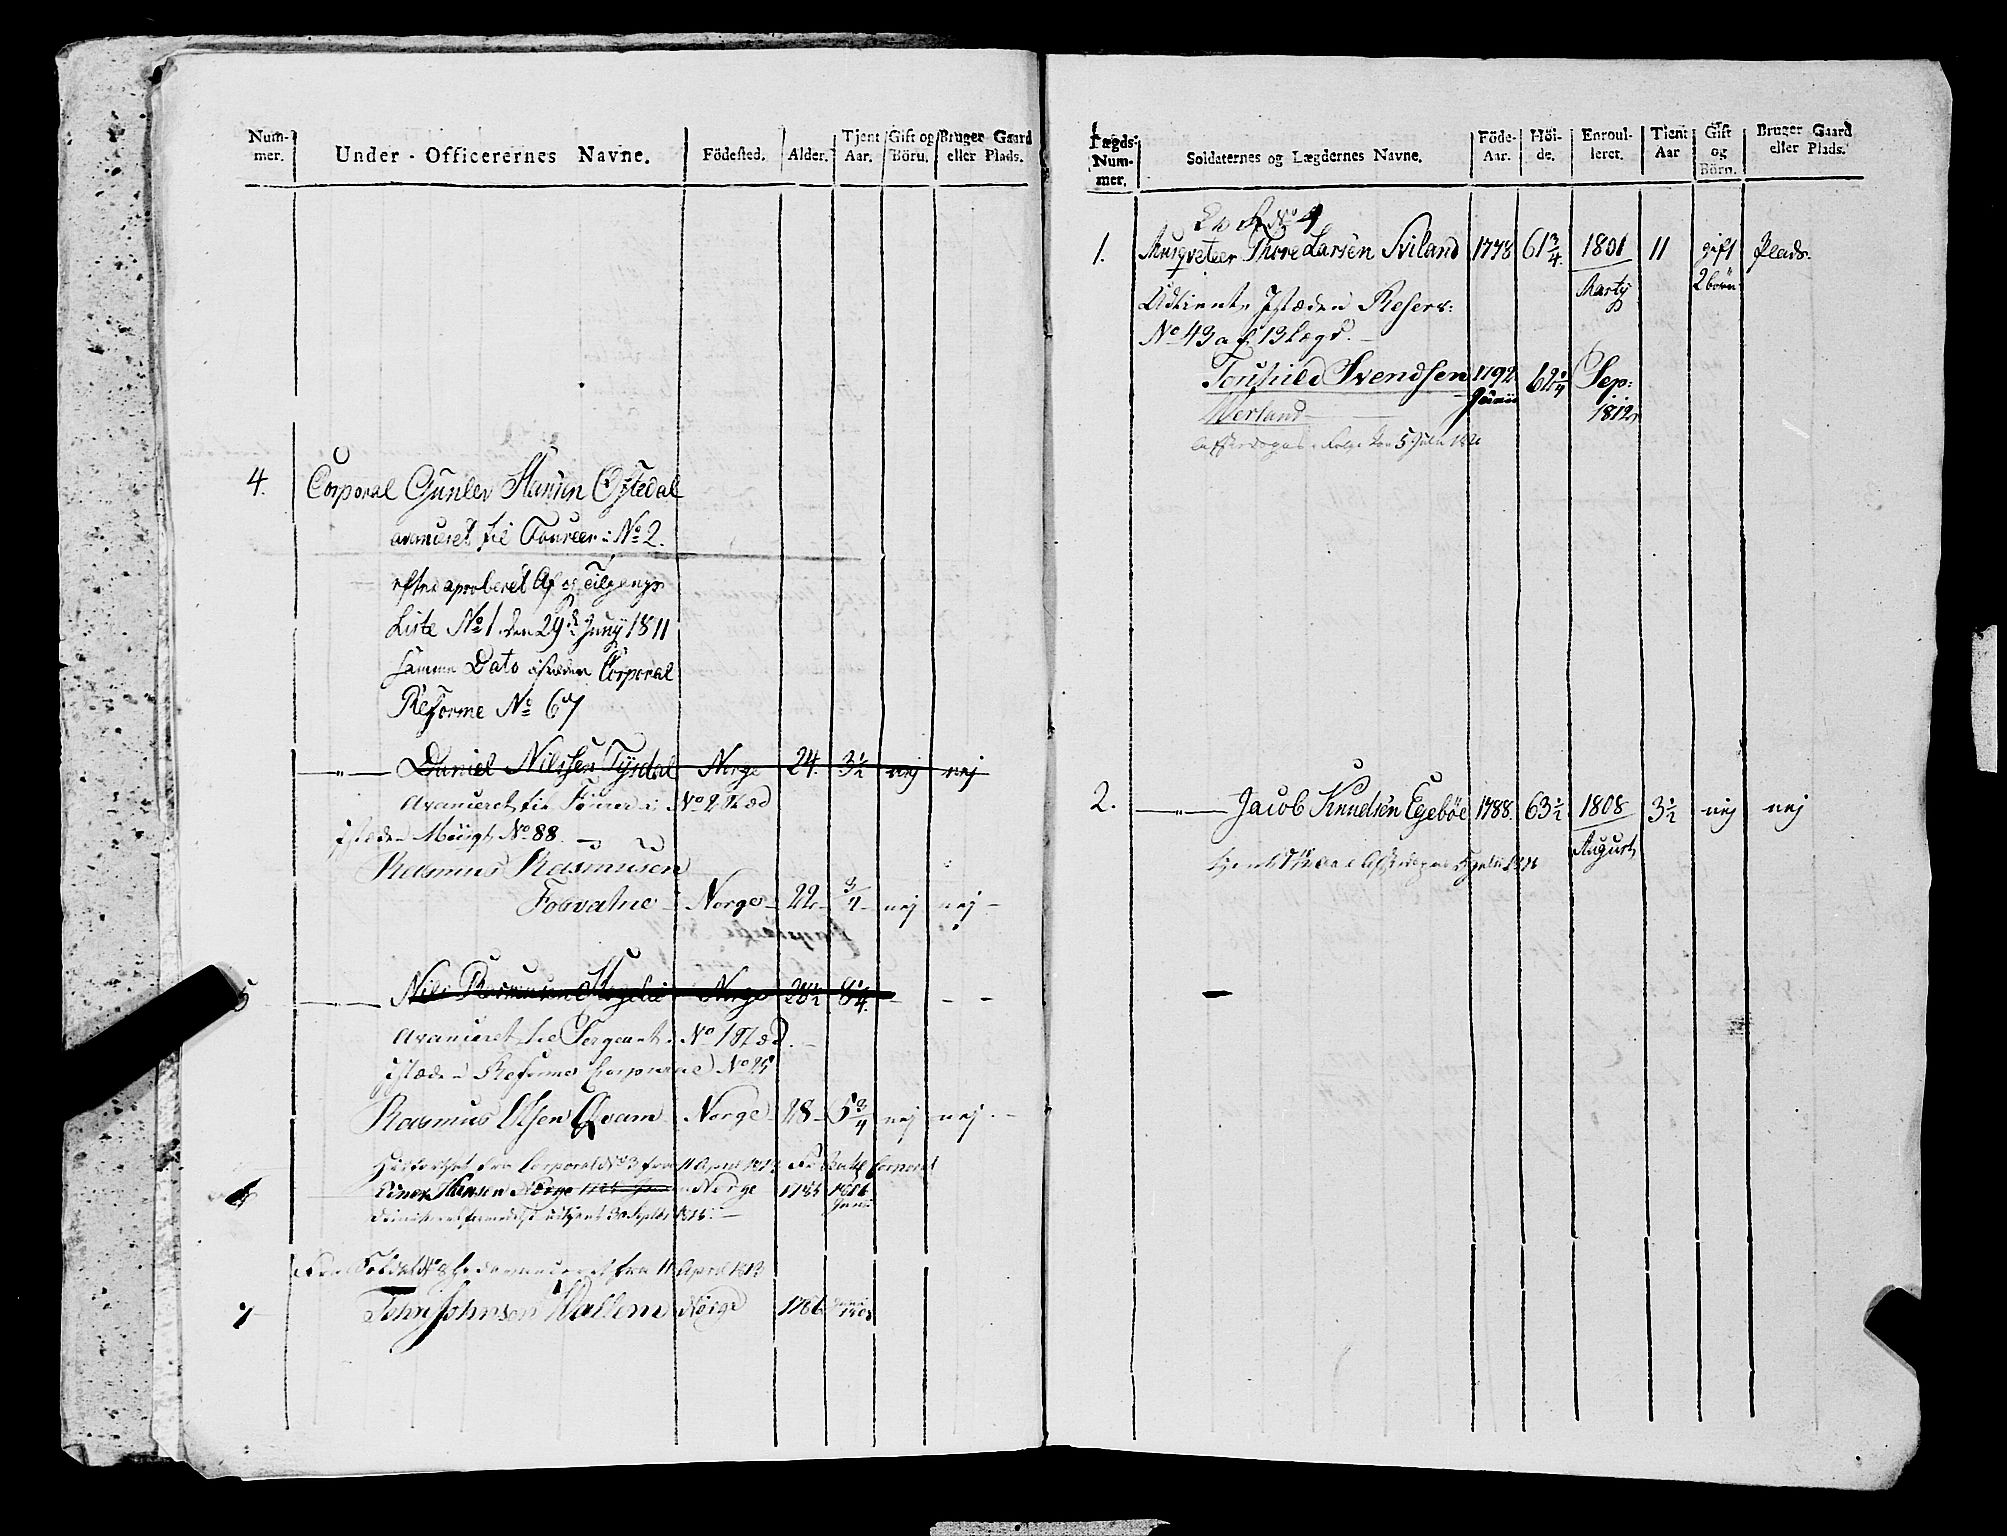 Num-
mer.
Under-Officerernes Navne.
Födested.
Alder.
Tjent
Aar.
Gift og
Börn.
Bruger Gaard
eller Plads.
4. Corporal Gunlev Hansen Ofstedal
avanceret til Foureer i No 2.
efter aproberet Af og Tilgangs
Liste No 1 den 29de Juny 1811
samme Dato istæden Corporal
Reforme No 67
—„— Daniel Nilssen Tysdal Norge 24. 3½ nej nej
Avanceret til Foureer i No 2
istæden No 88.
Rasmus Rasmusen
Fosvatne Norge 22 3/4 nej nej
5 Nils Rasmusen Norge 28½ 8¼ - - -
Avanceret til Sergeant No 1
istæden Reforme Corporal No 25
Rasmus Olsen Qvam Norge 28 5¾ nej nej
fra Corporal No 3 fra 11 April 1813
Einer Hansen Norge 1785
30 Septbr 1816
fra 11 April 1813
7 Johnsen Vallem Norge 1786 1808
Lægds-
Num-
mer.
Soldaternes og Lægdernes Navne.
Föde-
Aar.
Höi-
de.
Enroul-
leret.
Tient
Aar
Gift
og
Börn.
Bruger Gaard
eller Plads.
No 1
1. Musqveteer Thore Larsen Sviland 1778 61¾ 1801 11 gift Plads.
Marty 2 börn
Udtient Istæden Reserv:
No 43 af 13 Lægd.
Svendsen 1792 62¾ Sep:
Werland Junii 1812
2. —„— Jacob Knudsen Egebøe 1788. 63½ 1808 3½ nej nej
August